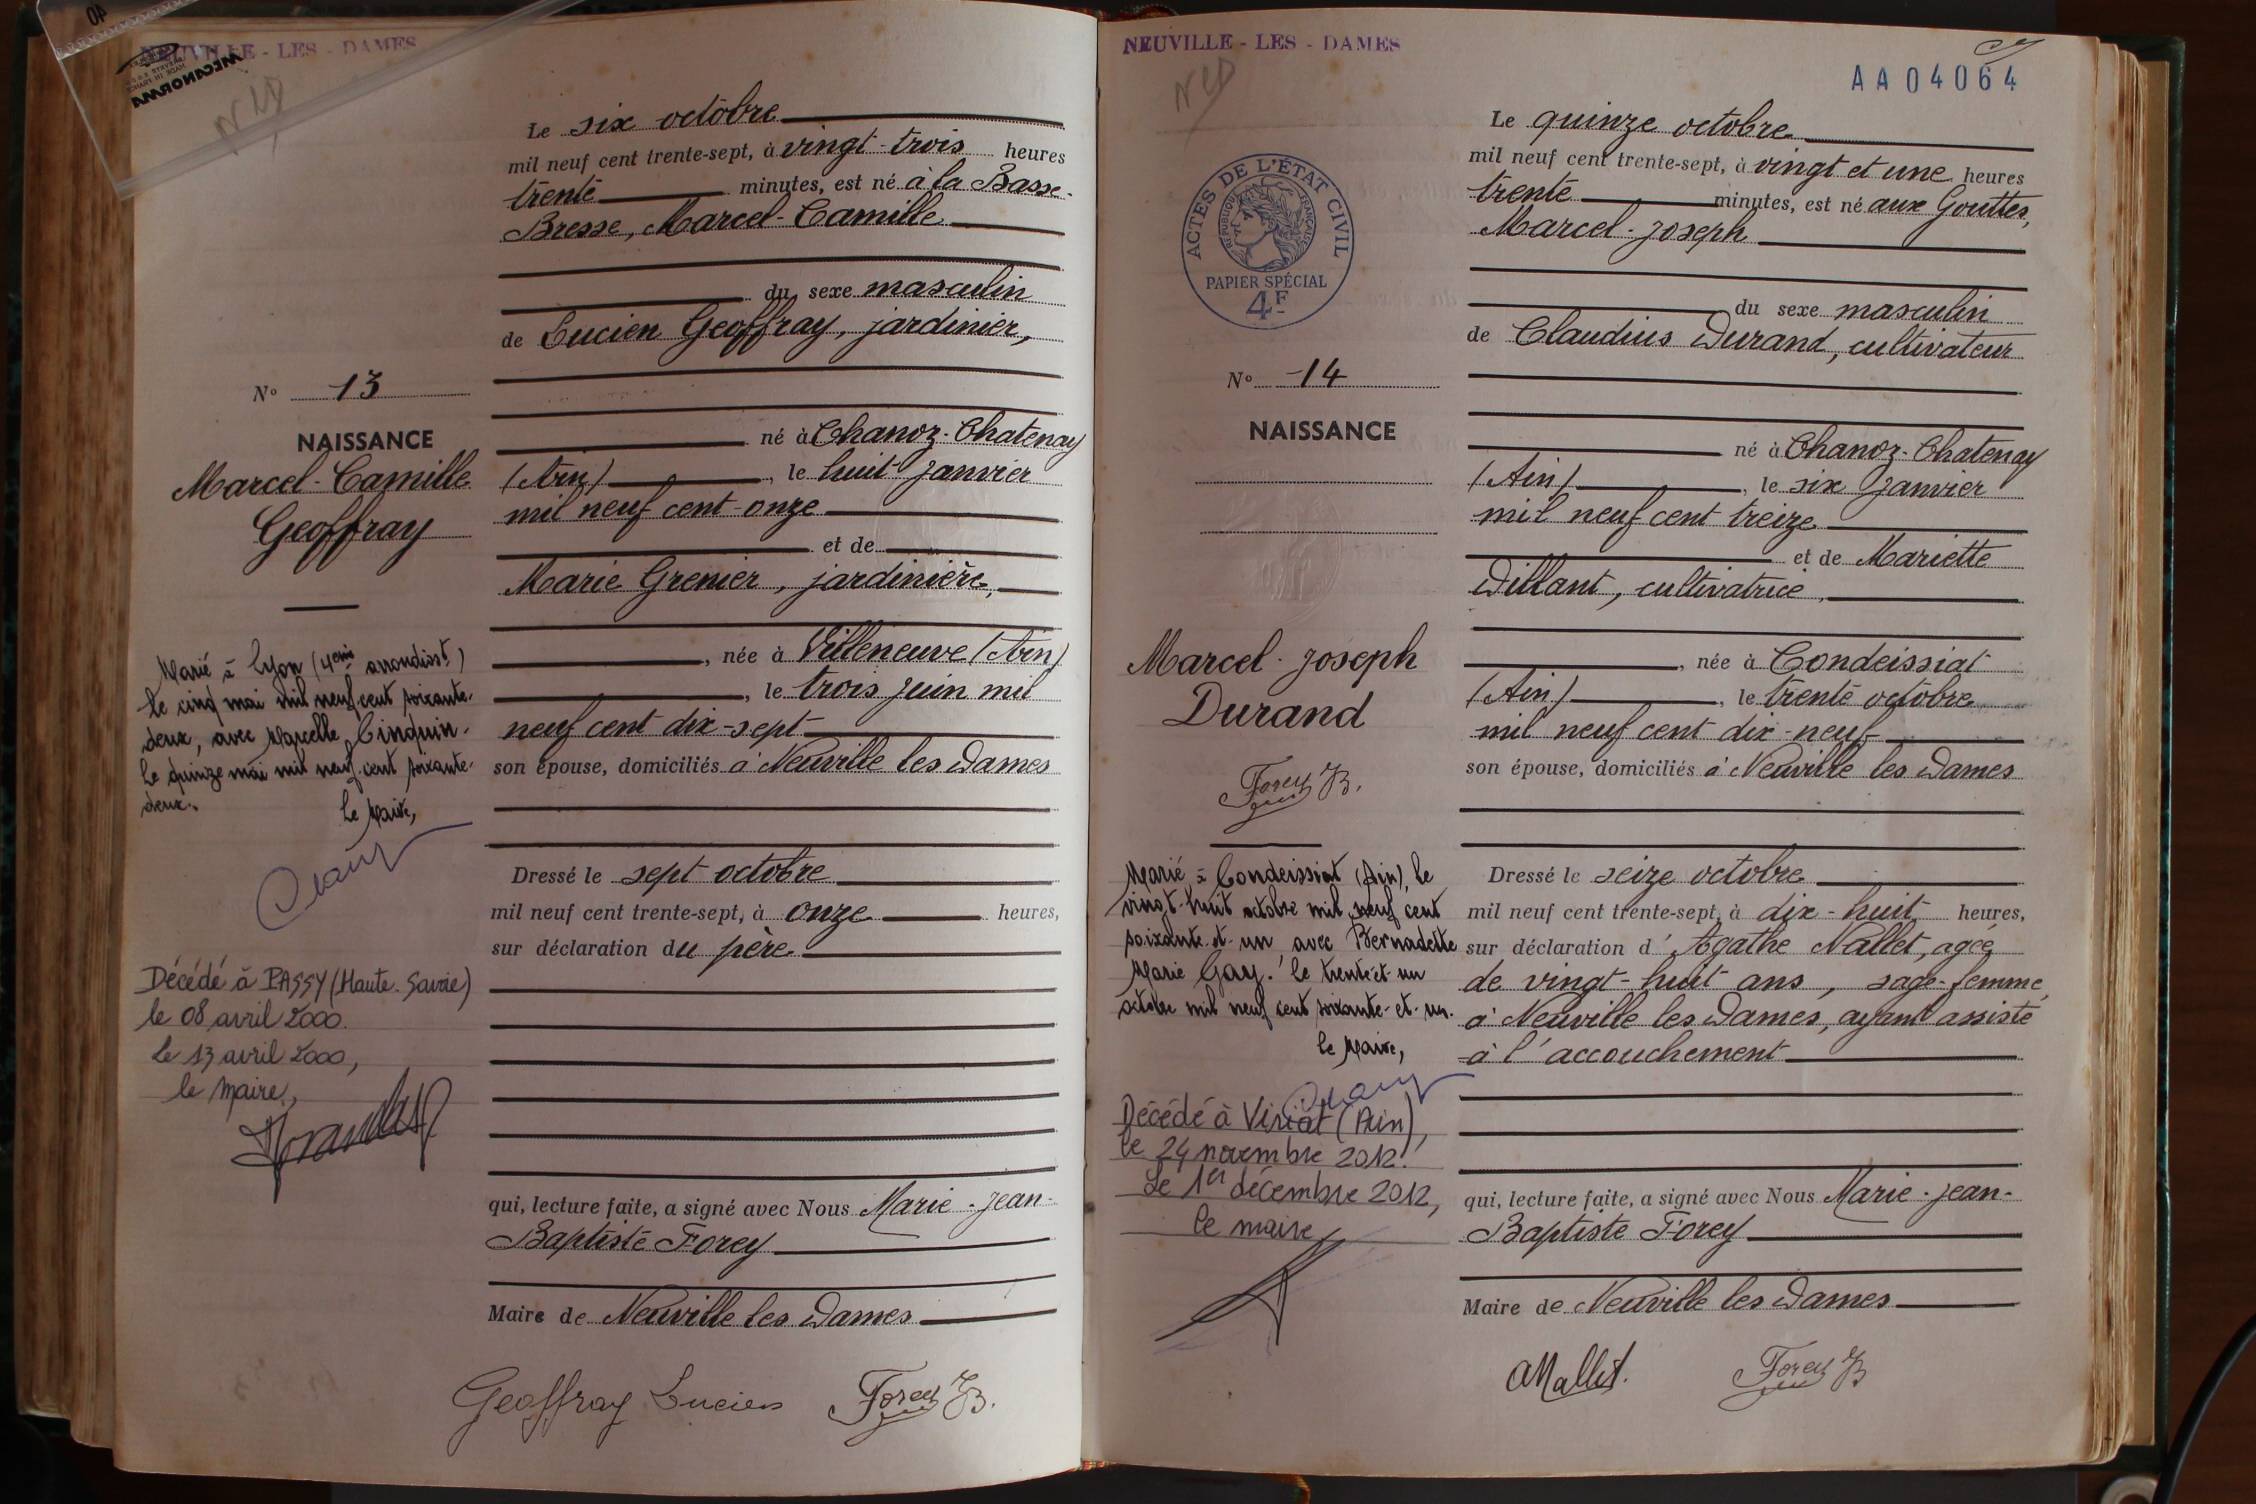 NEUVILLE - LES - DAMES
MECANORMA
40
NLD
Le six octobre
mil neuf cent trente-sept, à vingt-trois heures
trente minutes, est né à la Basse-
Bresse, Marcel-Camille
du sexe masculin
de Lucien Geoffray, jardinier,
né à Chanoz-Chatenay
(Ain), le huit janvier
mil neuf cent onze
et de
Marie Grenier, jardinière,
, née à Villeneuve (Ain)
, le trois juin mil
neuf cent dix-sept
son épouse, domiciliés à Neuville les Dames
Dressé le sept octobre
mil neuf cent trente-sept, à onze heures,
sur déclaration du père
qui, lecture faite, a signé avec Nous Marie-Jean-
Baptiste Forey
Maire de Neuville les Dames
Geoffray Lucien Forey JB.
N° 13
NAISSANCE
Marcel-Camille
Geoffray
Marié à Lyon (4eme arrondisst)
le cinq mai mil neuf cent soixante-
deux, avec Marcelle Cinquin.
Le quinze mai mil neuf cent soixante-
deux.
Le Maire,
Décédé à PASSY (Haute-Savoie)
le 08 avril 2000.
Le 13 avril 2000,
le maire,
NEUVILLE - LES - DAMES
NLD
AA04064
ACTES DE L'ÉTAT CIVIL
RÉPUBLIQUE FRANÇAISE
PAPIER SPÉCIAL
4F
Le quinze octobre
mil neuf cent trente-sept, à vingt et une heures
trente minutes, est né aux Gouttes,
Marcel-Joseph
du sexe masculin
de Claudius Durand, cultivateur
né à Chanoz-Chatenay
(Ain), le six janvier
mil neuf cent treize
et de Mariette
Dillant, cultivatrice,
, née à Condeissiat
(Ain), le trente octobre
mil neuf cent dix-neuf
son épouse, domiciliés à Neuville les Dames
Dressé le seize octobre
mil neuf cent trente-sept, à dix-huit heures,
sur déclaration d'Agathe Nallet, agée
de vingt-huit ans, sage-femme
à Neuville les Dames, ayant assisté
à l'accouchement
qui, lecture faite, a signé avec Nous Marie-Jean-
Baptiste Forey
Maire de Neuville les Dames
Forey JB
N° 14
NAISSANCE
Marcel-Joseph
Durand
Forey JB.
Marié à Condeissiat (Ain), le
vingt-huit octobre mil neuf cent
soixante-et-un avec Bernadette
Marie Gay. Le trente-et-un
octobre mil neuf cent soixante-et-un.
Le Maire,
Décédé à Viriat (Ain),
le 24 novembre 2012.
Le 1er décembre 2012,
le maire